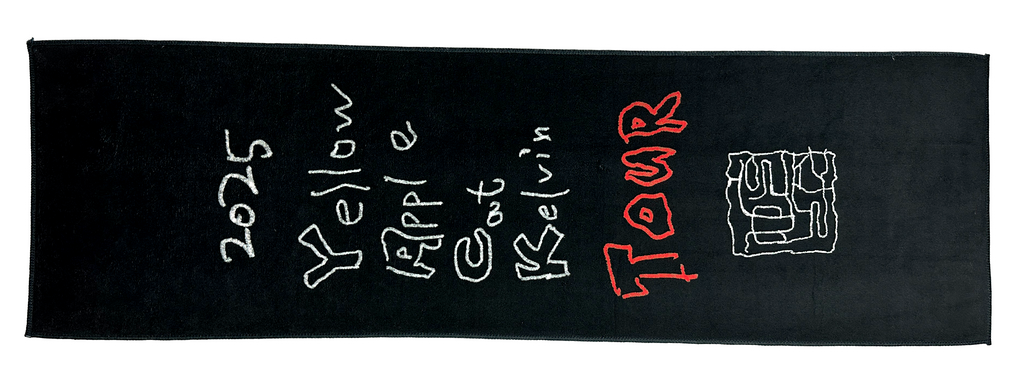 2025
Yellow
Apple
Cat
Kelvin
TOUR